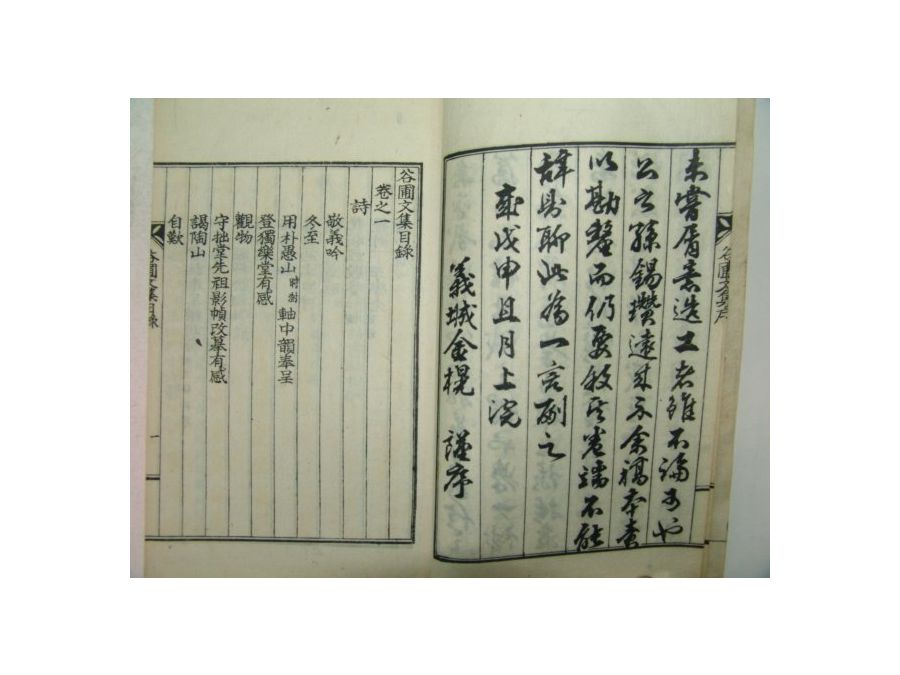 未嘗屑意造工者雖不論可也
公之孫錫攢遠來示余稿本責
以勘釐而仍要敍於卷端不能
辭則聊此爲一言副之
歲戊申且月上浣
義城金榥 謹序
谷圃文集序
谷圃文集目錄
卷之一
詩
敬義吟
冬至
用朴愚山 軸中韻奉呈
登獨樂堂有感
觀物
守拙堂先祖影幀改摹有感
謁陶山
自歎
谷圃文集目錄
一